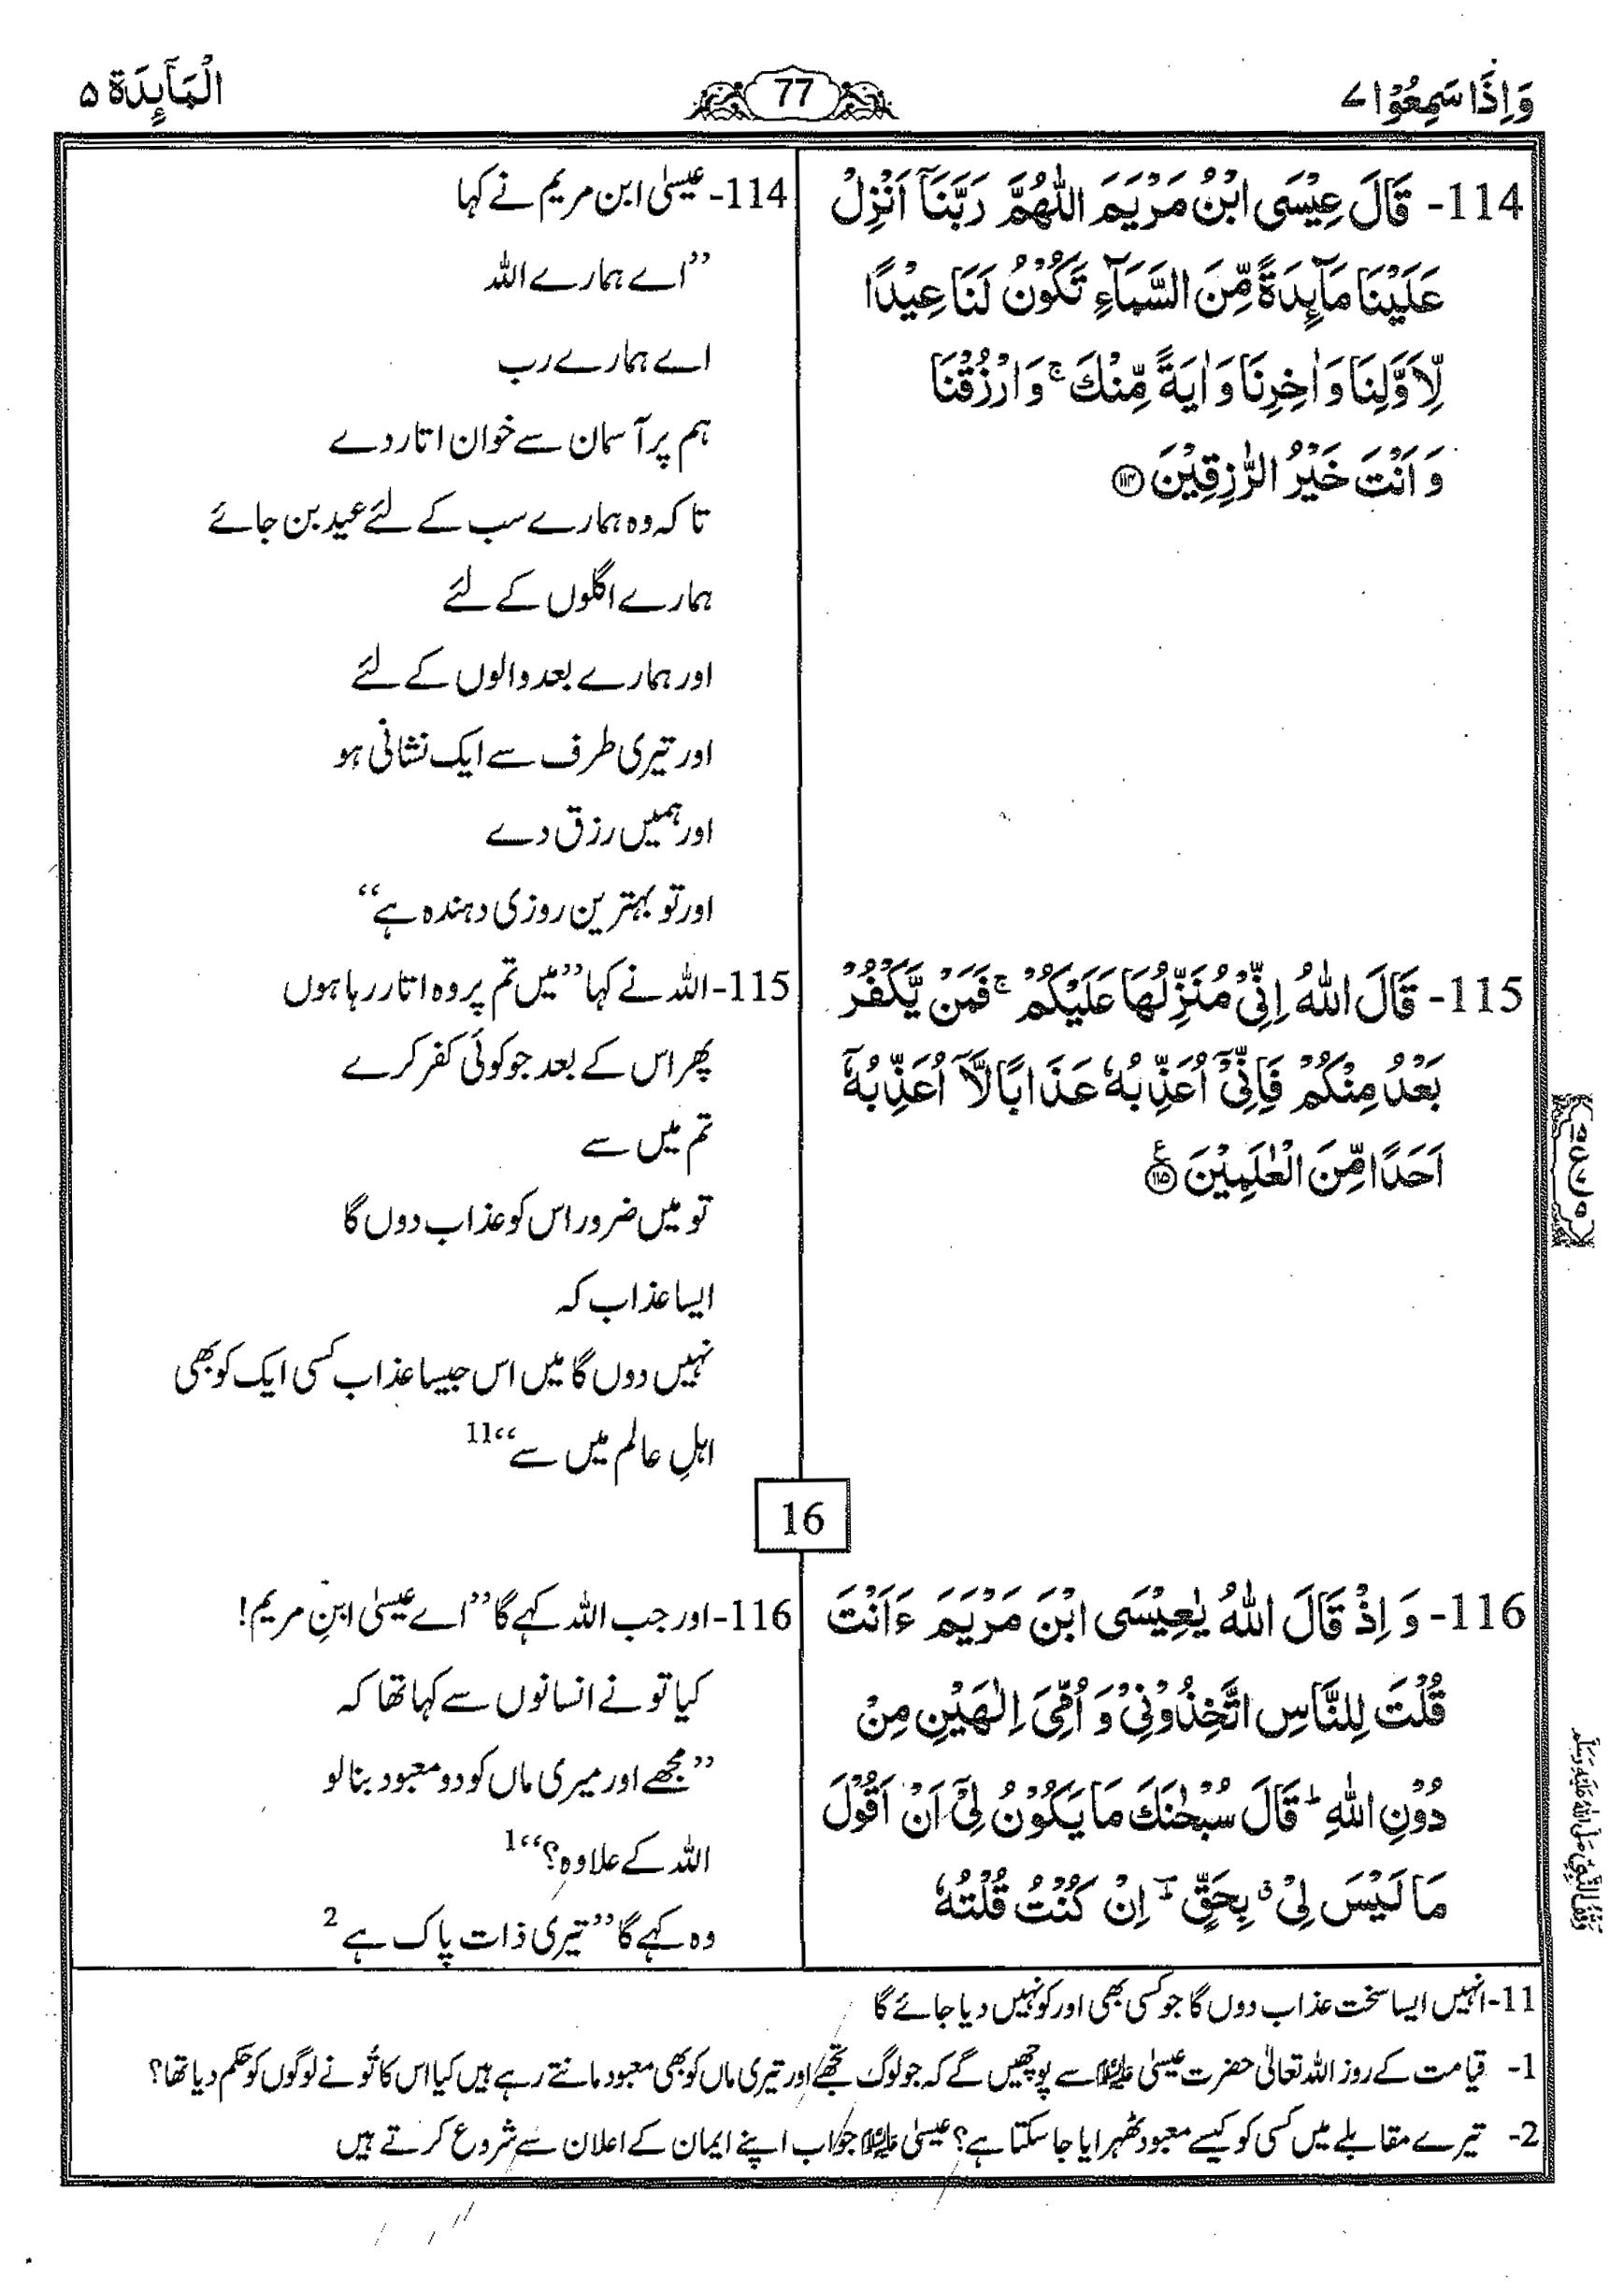 وَاِذَا سَمِعُوْا ۷
77
الْمَآىِٕدَة ۵
114- قَالَ عِيْسَى ابْنُ مَرْيَمَ اللّٰهُمَّ رَبَّنَاۤ اَنْزِلْ
عَلَيْنَا مَآىِٕدَةً مِّنَ السَّمَآءِ تَكُوْنُ لَنَا عِيْدًا
لِّاَوَّلِنَا وَاٰخِرِنَا وَاٰيَةً مِّنْكَ ۚ وَارْزُقْنَا
وَاَنْتَ خَيْرُ الرّٰزِقِيْنَ ﴿۱۱۴﴾
115- قَالَ اللّٰهُ اِنِّيْ مُنَزِّلُهَا عَلَيْكُمْ ۚ فَمَنْ يَّكْفُرْ
بَعْدُ مِنْكُمْ فَاِنِّيْۤ اُعَذِّبُهٗ عَذَابًا لَّاۤ اُعَذِّبُهٗۤ
اَحَدًا مِّنَ الْعٰلَمِيْنَ ﴿۱۱۵﴾ ع
116- وَ اِذْ قَالَ اللّٰهُ يٰعِيْسَى ابْنَ مَرْيَمَ ءَاَنْتَ
قُلْتَ لِلنَّاسِ اتَّخِذُوْنِيْ وَ اُمِّيَ اِلٰهَيْنِ مِنْ
دُوْنِ اللّٰهِ ؕ قَالَ سُبْحٰنَكَ مَا يَكُوْنُ لِيْۤ اَنْ اَقُوْلَ
مَا لَيْسَ لِيْ ۗ بِحَقٍّ ؕ اِنْ كُنْتُ قُلْتُهٗ
114- عیسیٰ ابن مریم نے کہا
’’اے ہمارے اللہ
اے ہمارے رب
ہم پر آسمان سے خوان اتار دے
تا کہ وہ ہمارے سب کے لئے عید بن جائے
ہمارے اگلوں کے لئے
اور ہمارے بعد والوں کے لئے
اور تیری طرف سے ایک نشانی ہو
اور ہمیں رزق دے
اور تو بہترین روزی دہندہ ہے‘‘
115- اللہ نے کہا ’’میں تم پر وہ اتار رہا ہوں
پھر اس کے بعد جو کوئی کفر کرے
تم میں سے
تو میں ضرور اس کو عذاب دوں گا
ایسا عذاب کہ
نہیں دوں گا میں اس جیسا عذاب کسی ایک کو بھی
اہلِ عالم میں سے‘‘ 11
16
116- اور جب اللہ کہے گا ’’اے عیسیٰ ابنِ مریم!
کیا تو نے انسانوں سے کہا تھا کہ
’’مجھے اور میری ماں کو دو معبود بنا لو
اللہ کے علاوہ؟‘‘ 1
وہ کہے گا ’’تیری ذات پاک ہے 2
11- انہیں ایسا سخت عذاب دوں گا جو کسی بھی اور کو نہیں دیا جائے گا
1- قیامت کے روز اللہ تعالیٰ حضرت عیسیٰ علیہ السلام سے پوچھیں گے کہ جو لوگ تجھے اور تیری ماں کو بھی معبود مانتے رہے ہیں کیا اس کا تُو نے لوگوں کو حکم دیا تھا؟
2- تیرے مقابلے میں کسی کو کیسے معبود ٹھہرایا جا سکتا ہے؟ عیسیٰ علیہ السلام جواب اپنے ایمان کے اعلان سے شروع کرتے ہیں